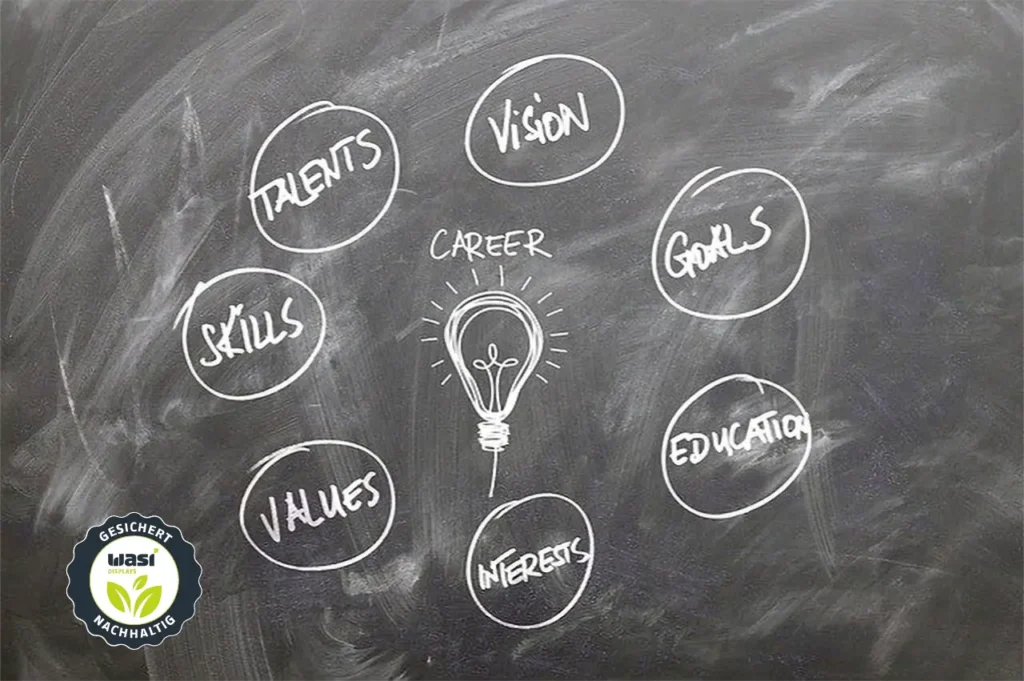 VISION
TALENTS
GOALS
CAREER
SKILLS
EDUCATION
VALUES
INTERESTS
GESICHERT
wasi
DISPLAYS
NACHHALTIG